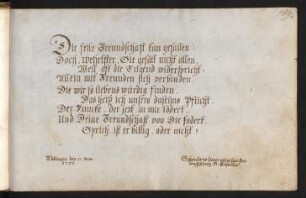 Die feile Freundschaft kan gefallen:
Doch, Wehrtster, Sie gefält nicht allen
Weil oft die Tugend widerspricht.
Allein mit Freunden sich verbinden
Die wir so liebens würdig finden
Das heist ich unsers daseins Pflicht:
Der Funcke, der zeit in mir lodert
Und Deine Freundschaft von Dir fodert.
Sprich, ist er billig, oder nicht?
Tübingen den